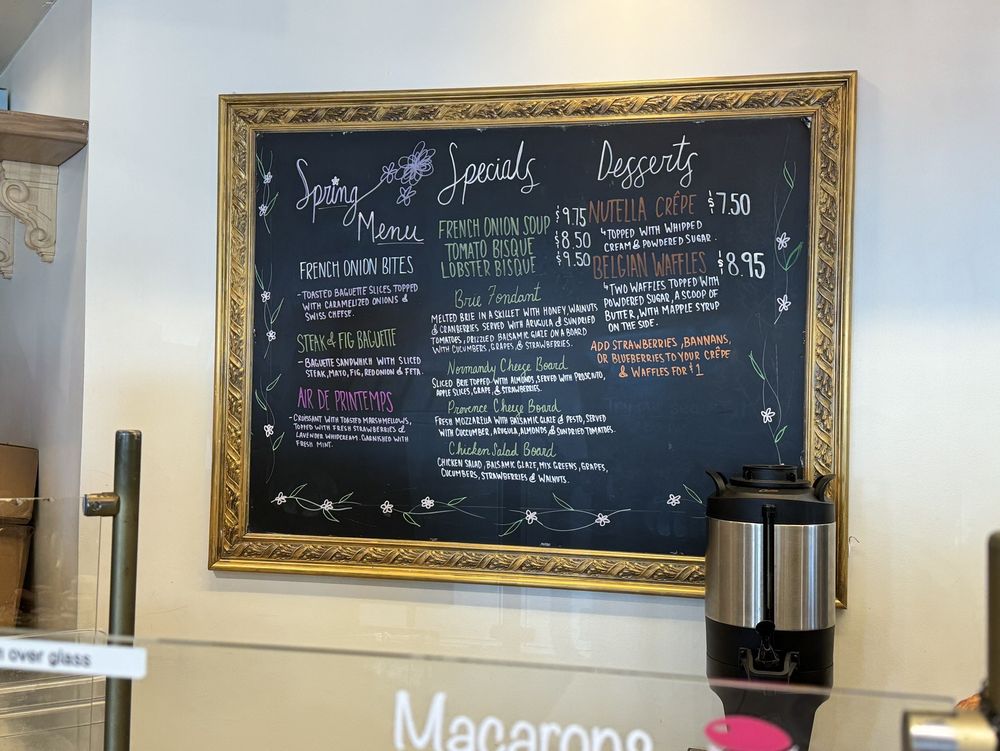 Spring
Menu
FRENCH ONION BITES
- TOASTED BAGUETTE SLICES TOPPED
WITH CARAMELIZED ONIONS &
SWISS CHEESE.
STEAK & FIG BAGUETTE
- BAGUETTE SANDWHICH WITH SLICED
STEAK, MAYO, FIG, RED ONION & FETA.
AIR DE PRINTEMPS
- CROISSANT WITH TOASTED MARSHMELLOWS,
TOPPED WITH FRESH STRAWBERRIES &
LAVENDER WHIPCREAM. GARNISHED WITH
FRESH MINT.
Specials
FRENCH ONION SOUP $9.75
TOMATO BISQUE $8.50
LOBSTER BISQUE $9.50
Brie Fondant
MELTED BRIE IN A SKILLET WITH HONEY, WALNUTS
& CRANBERRIES SERVED WITH ARUGULA & SUNDRIED
TOMATOES, DRIZZLED BALSAMIC GLAZE ON A BOARD
WITH CUCUMBERS, GRAPES & STRAWBERRIES.
Normandy Cheese Board
SLICED BRIE TOPPED WITH ALMONDS, SERVED WITH PROSCIUTO,
APPLE SLICES, GRAPE, & STRAWBERRIES.
Provence Cheese Board
FRESH MOZZARELLA WITH BALSAMIC GLAZE & PESTO, SERVED
WITH CUCCUMBER, ARUGULA, ALMONDS & SUNDRIED TOMATOES.
Chicken Salad Board
CHICKEN SALAD, BALSAMIC GLAZE, MIX GREENS, GRAPES,
CUCUMBERS, STRAWBERRIES & WALNUTS.
Desserts
NUTELLA CRÊPE $7.50
TOPPED WITH WHIPPED
CREAM & POWDERED SUGAR.
BELGIAN WAFFLES $8.95
TWO WAFFLES TOPPED WITH
POWDERED SUGAR, A SCOOP OF
BUTTER, WITH MAPPLE SYRUP
ON THE SIDE.
ADD STRAWBERRIES, BANNANS,
OR BLUEBERRIES TO YOUR CRÊPE
& WAFFLES FOR $1
over glass
Macarons